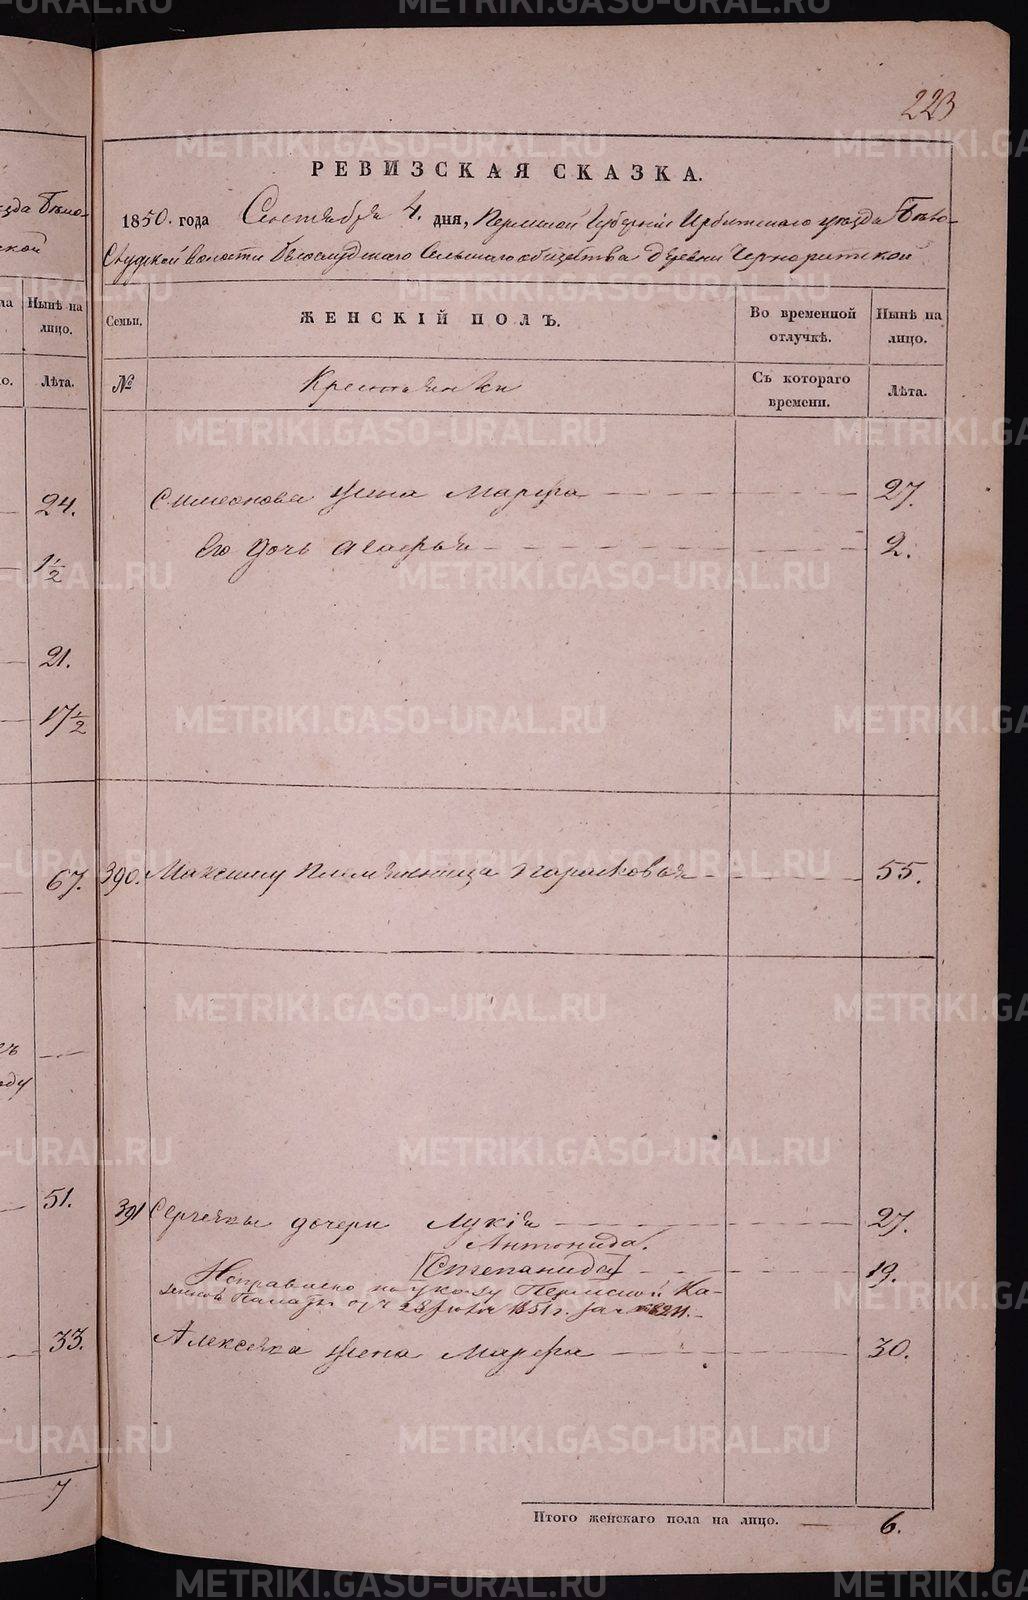 223
РЕВИЗСКАЯ СКАЗКА.
1850. года Сентября 4. дня, Пермской Губерніи Ирбитскаго уѣзда Бѣло-
Слудской волости Бѣлослудскаго Сельскаго общества деревни Чернорицкой
Семьи.
ЖЕНСКІЙ ПОЛЪ.
Во временной отлучкѣ.
Нынѣ на лицо.
№
Крестьянки
Съ котораго времени.
Лѣта.
Симеонова жена Марфа 27.
Его дочь Агафья 2.
390. Максиму племянница Парасковья 55.
391 Сергеявы дочери Лукія 27.
Антонида.
[Степанида] 19.
Исправлено по указу Пермской Ка-
зенной Палаты отъ 28 Іюля 1851 г. за №
Алексеява жена Марфа 30.
Итого женскаго пола на лицо. 6.
уѣзда Бѣло-
ской
Нынѣ на лицо.
Лѣта.
24.
1½
21.
17½
67.
оду
51.
33.
7
METRIKI.GASO-URAL.RU